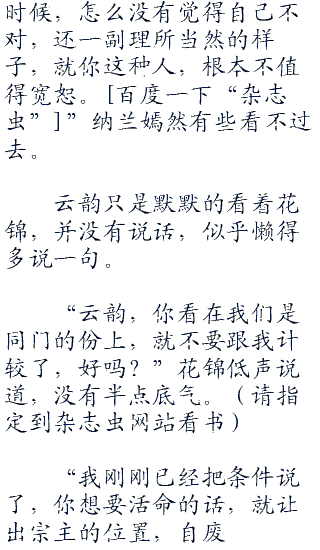 时候，怎么没有觉得自己不
对，还一副理所当然的样
子，就你这种人，根本不值
得宽恕。[百度一下“杂志
虫”]”纳兰嫣然有些看不过
去。
云韵只是默默的看着花
锦，并没有说话，似乎懒得
多说一句。
“云韵，你看在我们是
同门的份上，就不要跟我计
较了，好吗？”花锦低声说
道，没有半点底气。（请指
定到杂志虫网站看书）
“我刚刚已经把条件说
了，你想要活命的话，就让
出宗主的位置，自废